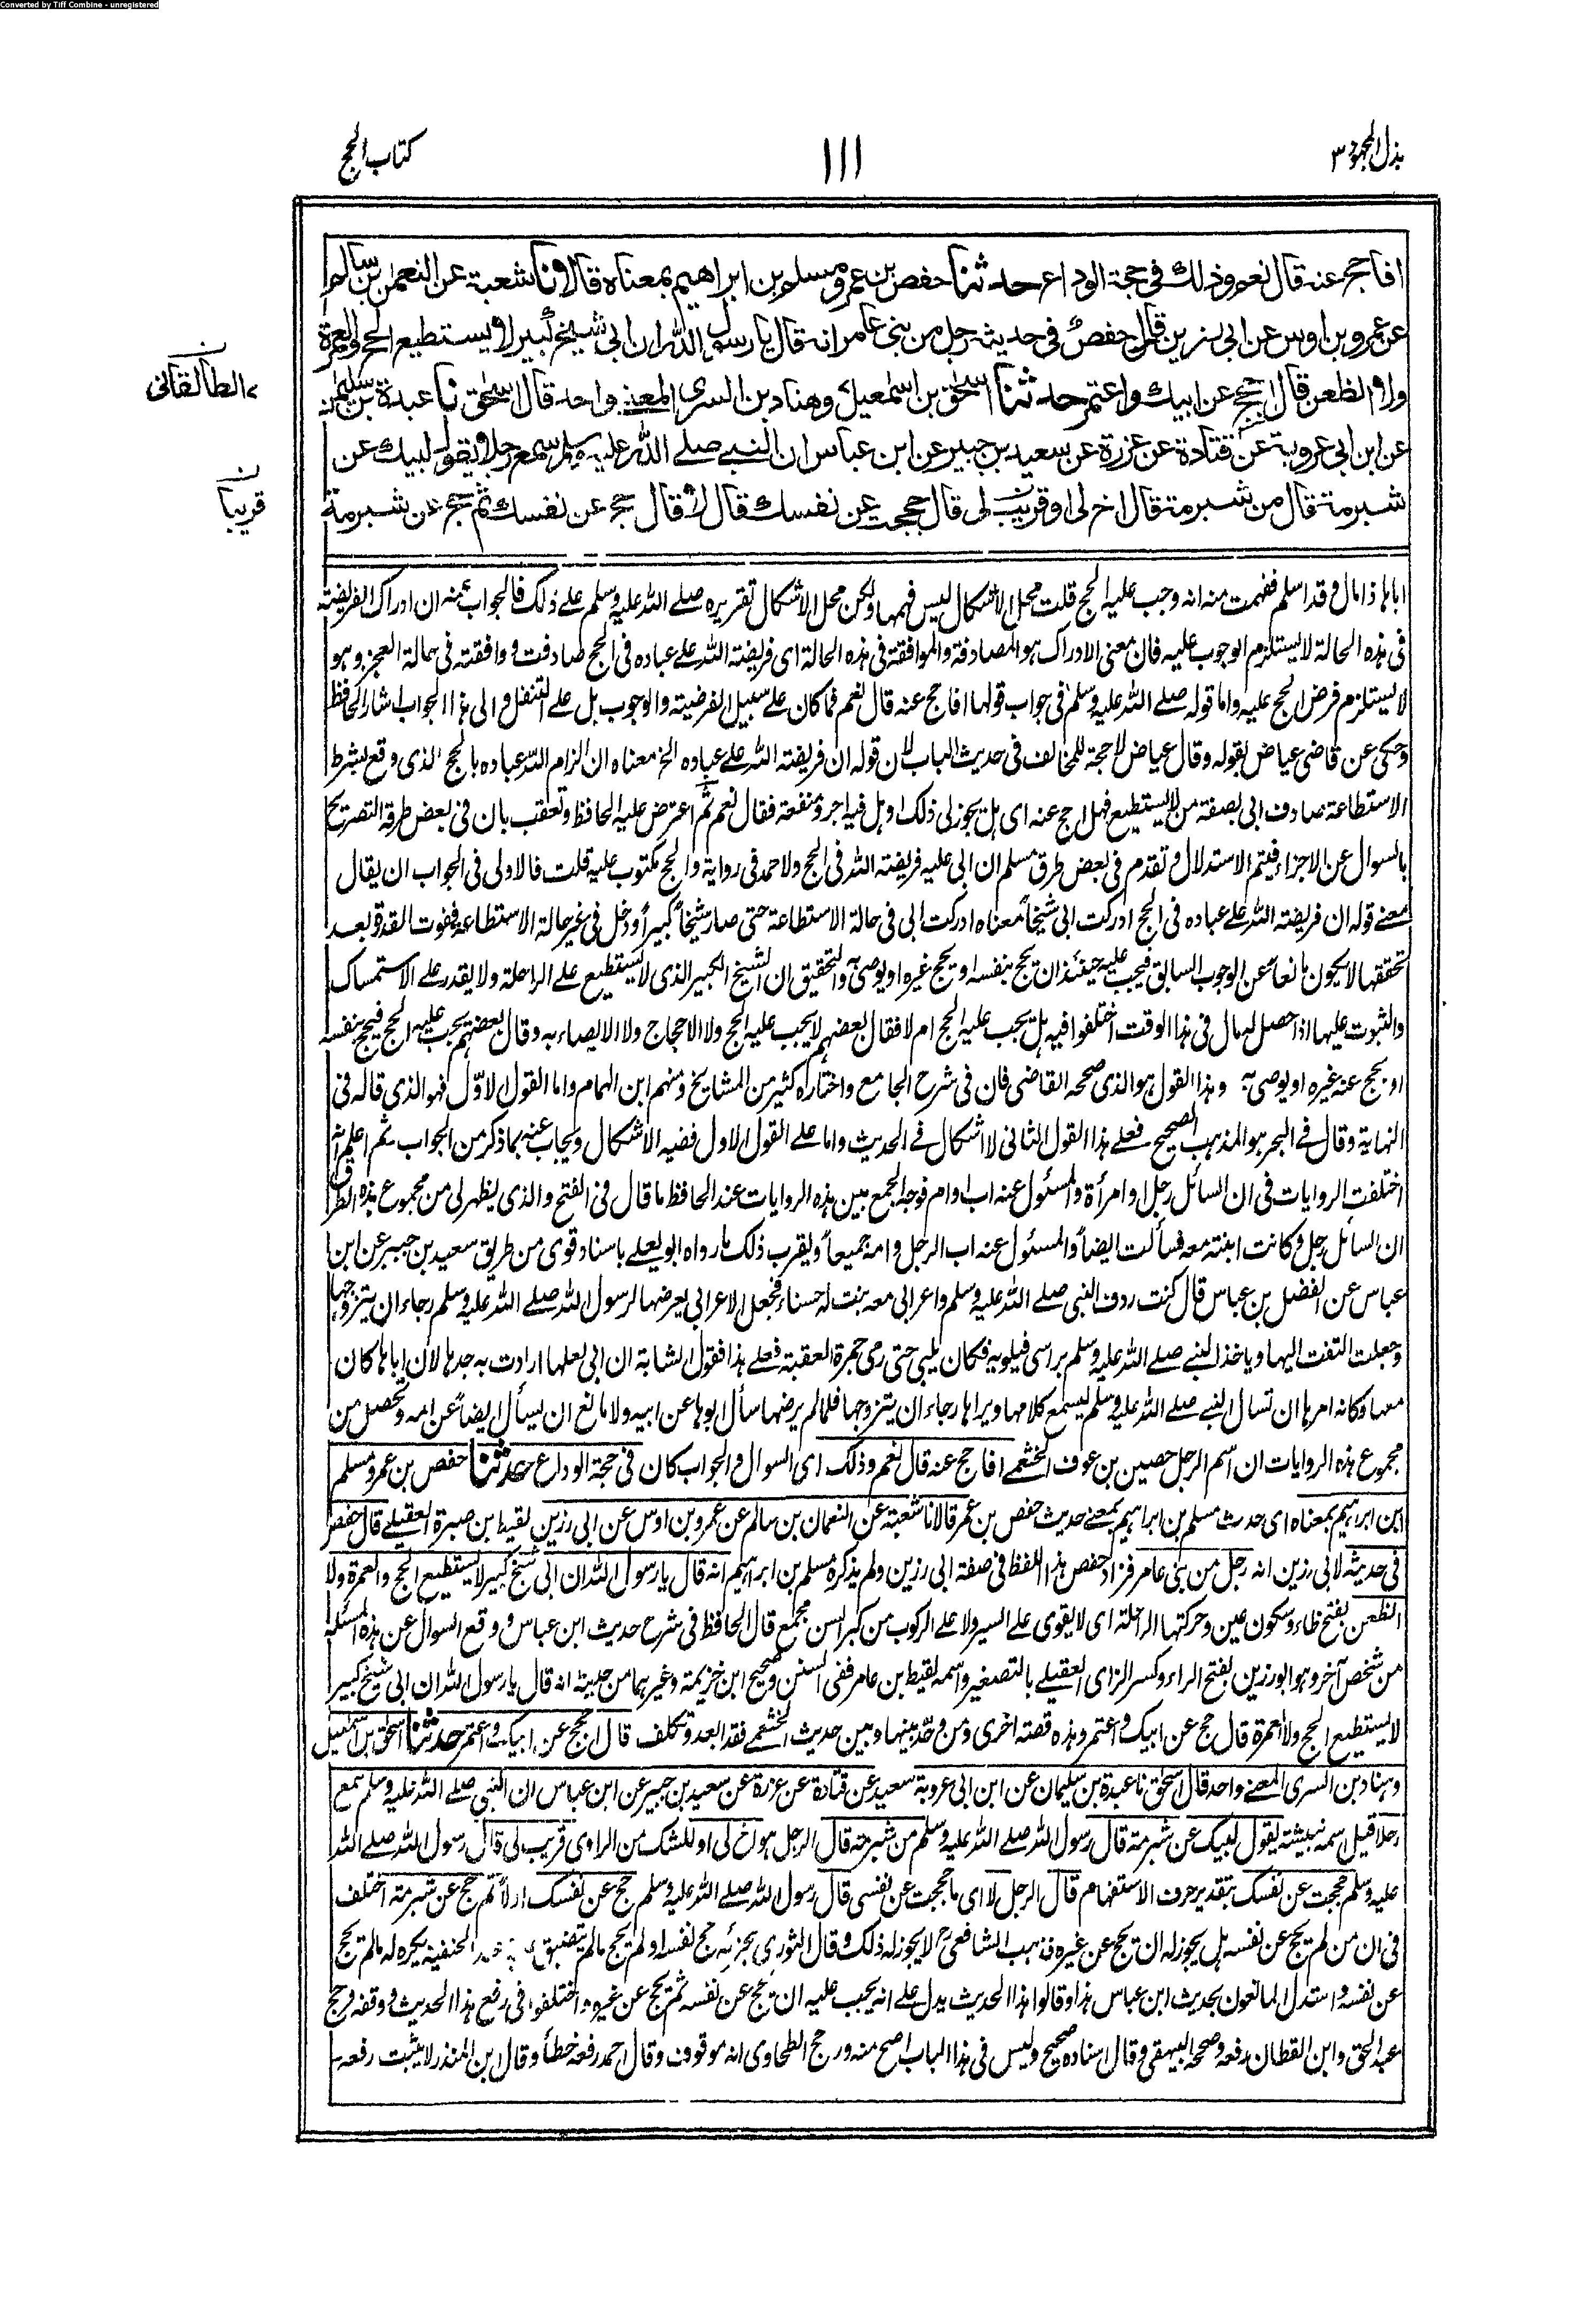 Converted by Tiff Combine - unregistered
بذل المجهود ٣
١١١
كتاب الحج
افاحج عنه قال نعم وذلك في حجة الوداع حدثنا حفص بن عمرو مسلم بن ابراهيم بمعناه قالا نا شعبة عن النعمن بن سالم
عن عمرو بن اوس عن ابي رزين قال حفص في حديثه رجل من بني عامر انه قال يا رسول الله ان ابي شيخ كبير لا يستطيع الحج والعمرة
ولا الظعن قال احجج عن ابيك واعتمر حدثنا اسحق بن اسمعيل وهناد بن السري المعنى واحد قال اسحق نا عبدة بن سليمن
الطالقاني
عن ابن ابي عروبة عن قتادة عن عزرة عن سعيد بن جبير عن ابن عباس ان النبي صلى الله عليه وسلم سمع رجلا يقول لبيك عن
شبرمة قال من شبرمة قال اخ لي او قريب لي قال حججت عن نفسك قال لا قال حج عن نفسك ثم حج عن شبرمة
قريبا
اباها ذا مال وقد اسلم ففهمت منه انه وجب عليه الحج قلت محل الاشكال ليس فهمها ولكن محل الاشكال تقريره صلى الله عليه وسلم على ذلك فالجواب عنه ان ادراك الفريضة
في هذه الحالة لا يستلزم الوجوب عليه فان معنى الادراك هو المصادفة والموافقة في هذه الحالة اى فريضة الله على عباده في الحج صادفت ووافقته في حالة العجز وهو
لا يستلزم فرض الحج عليه واما قوله صلى الله عليه وسلم في جواب قولها افاحج عنه قال نعم فما كان على سبيل الفرضية والوجوب بل على التنفل والى هذا الجواب اشار الحافظ
وحكى عن قاضي عياض بقوله وقال عياض لا حجة للمخالف في حديث الباب لان قوله ان فريضة الله على عباده الخ معناه ان الزام الله عباده بالحج الذي وقع بشرط
الاستطاعة صادف ابي بصفة من لا يستطيع فهل احج عنه اى هل يجوز لي ذلك او هل فيه اجر ومنفعة فقال نعم ثم اعترض عليه الحافظ وتعقب بان في بعض طرقه التصريح
بالسوال عن الاجزاء فيتم الاستدلال وتقدم في بعض طرق مسلم ان ابي عليه فريضة الله في الحج ولاحمد في رواية والحج مكتوب عليه قلت فالاولى في الجواب ان يقال
معنى قوله ان فريضة الله على عباده في الحج ادركت ابي شيخاً معناه ادركت ابي في حالة الاستطاعة حتى صار شيخاً كبيراً ودخل في غير حالة الاستطاعة ففوت القدرة بعد
تحققها لا يكون مانعاً عن الوجوب السابق فيجب عليه حينئذ ان يحج بنفسه او يحج غيره او يوصى به والتحقيق ان الشيخ الكبير الذي لا يستطيع على الراحلة ولا يقدر على الاستمساك
والثبوت عليها اذا حصل له مال في هذا الوقت اختلفوا فيه هل يجب عليه الحج ام لا فقال بعضهم لا يجب عليه الحج ولا الاحجاج ولا الايصاء به وقال بعضهم يجب عليه الحج فيحج بنفسه
او يحج عنه غيره او يوصى به وهذا القول هو الذي صححه القاضي فان في شرح الجامع واختاره كثير من المشايخ ومنهم ابن الهمام واما القول الاوّل فهو الذي قاله في
النهاية وقال في البحر هو المذهب الصحيح فعلى هذا القول الثاني لا اشكال في الحديث واما على القول الاول ففيه الاشكال ويجاب عنه بما ذكر من الجواب ثم اعلم انه
اختلفت الروايات في ان السائل رجل او امرأة والمسئول عنه اب او ام فوجه الجمع بين هذه الروايات عند الحافظ ما قال في الفتح والذي يظهر لي من مجموع هذه الطرق
ان السائل رجل وكانت ابنته معه فسألت ايضاً والمسئول عنه اب الرجل وامه جميعاً ويقرب ذلك ما رواه ابو يعلى باسناد قوى من طريق سعيد بن جبير عن ابن
عباس عن الفضل بن عباس قال كنت ردف النبي صلى الله عليه وسلم واعرابي معه بنت له حسناء فجعل الاعرابي يعرضها لرسول الله صلى الله عليه وسلم رجاء ان يتزوجها
وجعلت التفت اليها وياخذ النبي صلى الله عليه وسلم براسي فيلويه فكان يلبي حتى رمى جمرة العقبة فعلى هذا فقول الشابة ان ابي لعلها ارادت به جدها لان اباها كان
معها وكانه امرها ان تسال النبي صلى الله عليه وسلم ليسمع كلامها ويراها رجاء ان يتزوجها فلما لم يرضها سأل ابوها عن ابيه ولا مانع ان يسأل ايضاً عن امه وتحصل من
مجموع هذه الروايات ان اسم الرجل حصين بن عوف الخثعمي افاحج عنه قال نعم وذلك اى السوال والجواب كان في حجة الوداع حدثنا حفص بن عمرو مسلم
ابن ابراهيم بمعناه اى حديث مسلم بن ابراهيم بمعنى حديث حفص بن عمر قالا نا شعبة عن النعمان بن سالم عن عمرو بن اوس عن ابي رزين لقيط بن صبرة العقيلي قال حفص
في حديثه لابي رزين انه رجل من بني عامر فزاد حفص هذا اللفظ في صفة ابي رزين ولم يذكره مسلم بن ابراهيم انه قال يا رسول الله ان ابي شيخ كبير لا يستطيع الحج والعمرة ولا
الظعن بفتح ظاء وسكون عين وحركتها الراحلة اى لا يقوى على السير ولا على الركوب من كبر السن مجمع قال الحافظ في شرح حديث ابن عباس ووقع السوال عن هذه المسئلة
من شخص آخر وهو ابو رزين بفتح الراء وكسر الزاى العقيلي بالتصغير واسمه لقيط بن عامر ففي السنن وصحيح ابن خزيمة وغيرهما من حديثه انه قال يا رسول الله ان ابي شيخ كبير
لا يستطيع الحج ولا العمرة قال حج عن ابيك واعتمر وهذه قصة اخرى ومن وحّد بينها وبين حديث الخثعمي فقد ابعد وتكلف قال احجج عن ابيك واعتمر حدثنا اسحق بن اسمعيل
وهناد بن السري المعنى واحد قال اسحق نا عبدة بن سليمان عن ابن ابي عروبة سعيد عن قتادة عن عزرة عن سعيد بن جبير عن ابن عباس ان النبي صلى الله عليه وسلم سمع
رجلا قيل اسمه نبيشة يقول لبيك عن شبرمة قال رسول الله صلى الله عليه وسلم من شبرمة قال الرجل هو اخ لي او للشك من الراوى قريب لي قال رسول الله صلى الله
عليه وسلم حججت عن نفسك بتقدير حرف الاستفهام قال الرجل لا اى ما حججت عن نفسي قال رسول الله صلى الله عليه وسلم حج عن نفسك اولاً ثم حج عن شبرمة اختلف
في ان من لم يحج عن نفسه هل يجوز له ان يحج عن غيره فذهب الشافعي لا يجوز له ذلك وقال الثوري يجزئه حج نفسه او لم يحج ما لم يتضيق الحنفية يكره له ما لم يحج
عن نفسه واستدل المانعون بحديث ابن عباس هذا وقالوا هذا الحديث يدل على انه يجب عليه ان يحج عن نفسه ثم يحج عن غيره واختلفوا في رفع هذا الحديث ووقفه ورجح
عبد الحق وابن القطان رفعه وصححه البيهقي وقال اسناده صحيح وليس في هذا الباب اصح منه ورجح الطحاوي انه موقوف وقال احمد رفعه خطأ وقال ابن المنذر لا يثبت رفعه